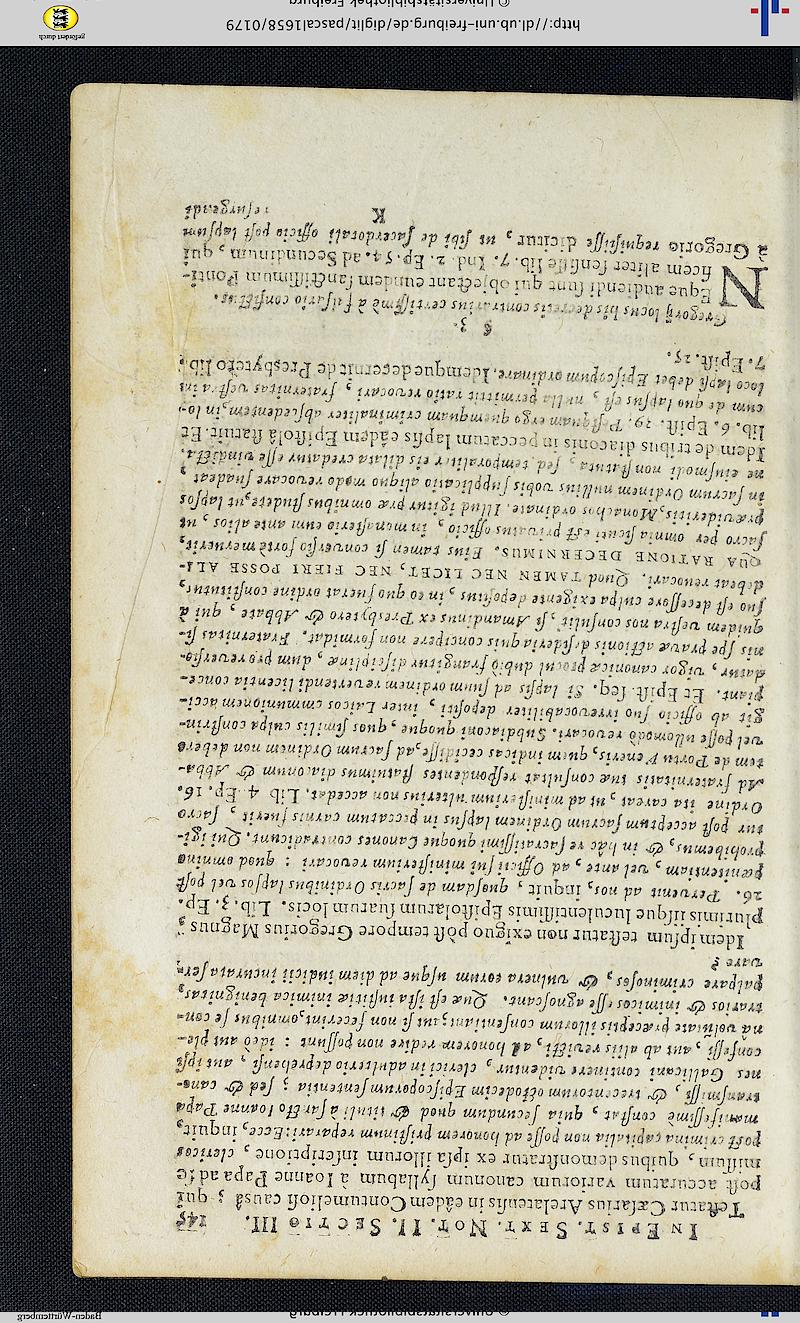 IN EPIST. SEXT. NOT. II. SECTIO III. 145
Testatur Cæsarius Arelatensis in eâdem Contumeliosi causâ ; qui
post accuratum variorum canonum syllabum à Ioanne Papa ad se
missum, quibus demonstratur ex ipsa illorum inscriptione, clericos
post crimina capitalia non posse ad honorem pristinum reparari: Ecce, inquit,
manifestissimè constat, quia secundum quod & tituli à sancto Ioanne Papa
transmissi, & trecentorum octodecim Episcoporum sententia ; sed & cano-
nes Gallicani continere videntur, clerici in adulterio deprehensi, aut ipsi
confessi, aut ab aliis revicti, ad honorem redire non possunt : ideò aut ple-
na volũtate præceptis illorum consentiant; aut si non fecerint, omnibus se con-
trarios & inimicos esse agnoscant. Quæ est ista iustitiæ inimica benignitas,
palpare criminosos, & vulnera eorum usque ad diem iudicii incurata ser-
vare ?
Idem ipsum testatur non exiguo pòst tempore Gregorius Magnus,
plurimis iisque luculentissimis Epistolarum suarum locis. Lib. 3. Ep.
26. Pervenit ad nos, inquit, quosdam de sacris Ordinibus lapsos vel post
pœnitentiam, vel ante, ad Officii sui ministerium revocari : quod omnino
prohibemus, & in hâc re sacratissimi quoque Canones contradicunt. Qui igi-
tur post acceptum sacrum Ordinem lapsus in peccatum carnis fuerit, sacro
Ordine ita careat, ut ad ministerium ulterius non accedat. Lib. 4. Ep. 16.
Ad fraternitatis tuæ consultat respondentes statuimus diaconum & Abba-
tem de Portu Veneris, quem indicas cecidisse, ad sacrum Ordinem non debere
vel posse ullomodò revocari. Subdiaconi quoque, quos similis culpa constrin-
git ab officio suo irrevocabiliter depositi, inter Laicos communionem acci-
piant. Et Epist. seq. Si lapsis ad suum ordinem revertendi licentia conce-
datur, vigor canonicæ procul dubiò frangitur disciplinæ, dum pro reversio-
nis spe pravæ actionis desideria quis concipere non formidat. Fraternitas si-
quidem vestra nos consulit, si Amandinus ex Presbytero & Abbate, qui à
suo est decessore culpa exigente depositus, in eo quo fuerat ordine constitutus,
debeat revocari. Quod TAMEN NEC LICET, NEC FIERI POSSE ALI-
QUA RATIONE DECERNIMUS. Eius tamen si conversio fortè meruerit,
sacro per omnia sicuti est privatus officio, in monasterio eum ante alios, ut
prævideritis, Monachos ordinate. Illud igitur præ omnibus studete, ut lapsos
in sacrum Ordinem nullius vobis supplicatio aliquo modo revocare suadeat,
ne eiusmodi non statuta, sed temporaliter eis dilata credatur esse vindicta.
Idem de tribus diaconis in peccatum lapsis eâdem Epistolâ statuit. Et
lib. 6. Epist. 39. Postquam ergo quemquam criminaliter abscedentem, in lo-
cum de quo lapsus est, nulla permittit ratio revocari, fraternitas vestra in
loco lapsi debet Episcopum ordinare. Idemque decernit de Presbytero lib.
7. Epist. 25.
§ 3.
Gregorij locus his decretis contrarius certissimè à falsario confictus.
NEque audiendi sunt qui objectant eundem sanctissimum Ponti-
ficem aliter sensisse lib. 7. Ind. 2. Ep. 54. ad Secundinum, qui
à Gregorio requisisse dicitur, ut sibi de sacerdotali officio post lapsum
K
resurgendi
http://dl.ub.uni-freiburg.de/diglit/pascal1658/0179
© Universitätsbibliothek Freiburg
gefördert durch
Baden-Württemberg